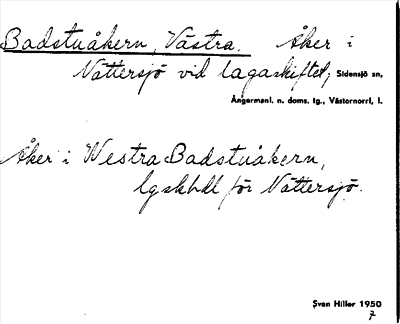 Badstuåkern, Västra. Åker i
Nättersjö vid lagaskiftet; Sidensjö sn,
Ångermanl. n. doms. tg., Västernorrl. l.
Åker i Westra Badstuåkern,
lgskhdl för Nättersjö.
Sven Hiller 1950
7